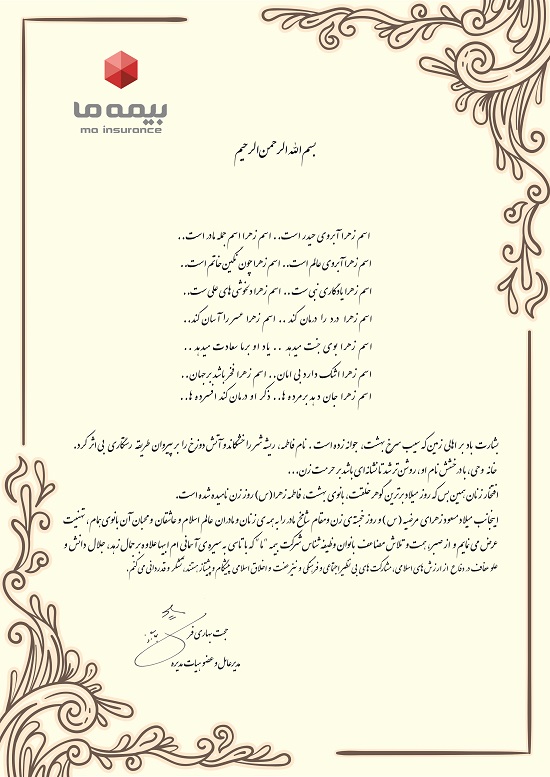 بیمه ما
ma insurance
بسم الله الرحمن الرحیم
اسم زهرا آبروی حیدر است.. اسم زهرا اسم جمله مادر است..
اسم زهرا آبروی عالم است.. اسم زهرا چون نگین خاتم است..
اسم زهرا یادگاری نبی ست.. اسم زهرا دلخوشی های علی ست..
اسم زهرا درد را درمان کند .. اسم زهرا عسر را آسان کند..
اسم زهرا بوی جنت میدهد .. یاد او بر ما سعادت میدهد ..
اسم زهرا اشک دارد بی امان.. اسم زهرا فخر باشد بر جهان..
اسم زهرا جان دهد بر مرده ها.. ذکر او درمان کند افسرده ها..
بشارت باد بر اهالی زمین که سیب سرخ بهشت، جوانه زده است . نام فاطمه، ریشه شر را خشکاند و آتش دوزخ را بر پیروان طریقه رستگاری بی اثر کرد.
خانه وحی، با درخشش نام او، روشن تر شد تا نشانه ای باشد بر حرمت زن...
افتخار زنان همین بس که روز میلاد برترین گوهر خلقت، بانوی بهشت، فاطمه زهرا (س) روز زن نامیده شده است.
اینجانب میلاد مسعود زهرای مرضیه (س) و روز خجسته ی زن ومقام شامخ مادر را به همه ی زنان و مادران عالم اسلام و عاشقان و محبان آن بانوی همام، تهنیت
عرض می نمایم و از صبر، همت و تلاش مضاعف بانوان وظیفه شناس شرکت بیمه "ما" که با تاسی به سیره ی آسمانی ام ابیها علاوه بر حمال زهد، جلال دانش و
علو عفاف در دفاع از ارزش های اسلامی، مشارکت های بی نظیر اجتماعی و فرهنگی و نیز عفت و اخلاق اسلامی پیشگام و پیشتاز هستند، تشکر و قدردانی می کنم.
حجت بهاری فر
مدیرعامل و عضو هیات مدیره